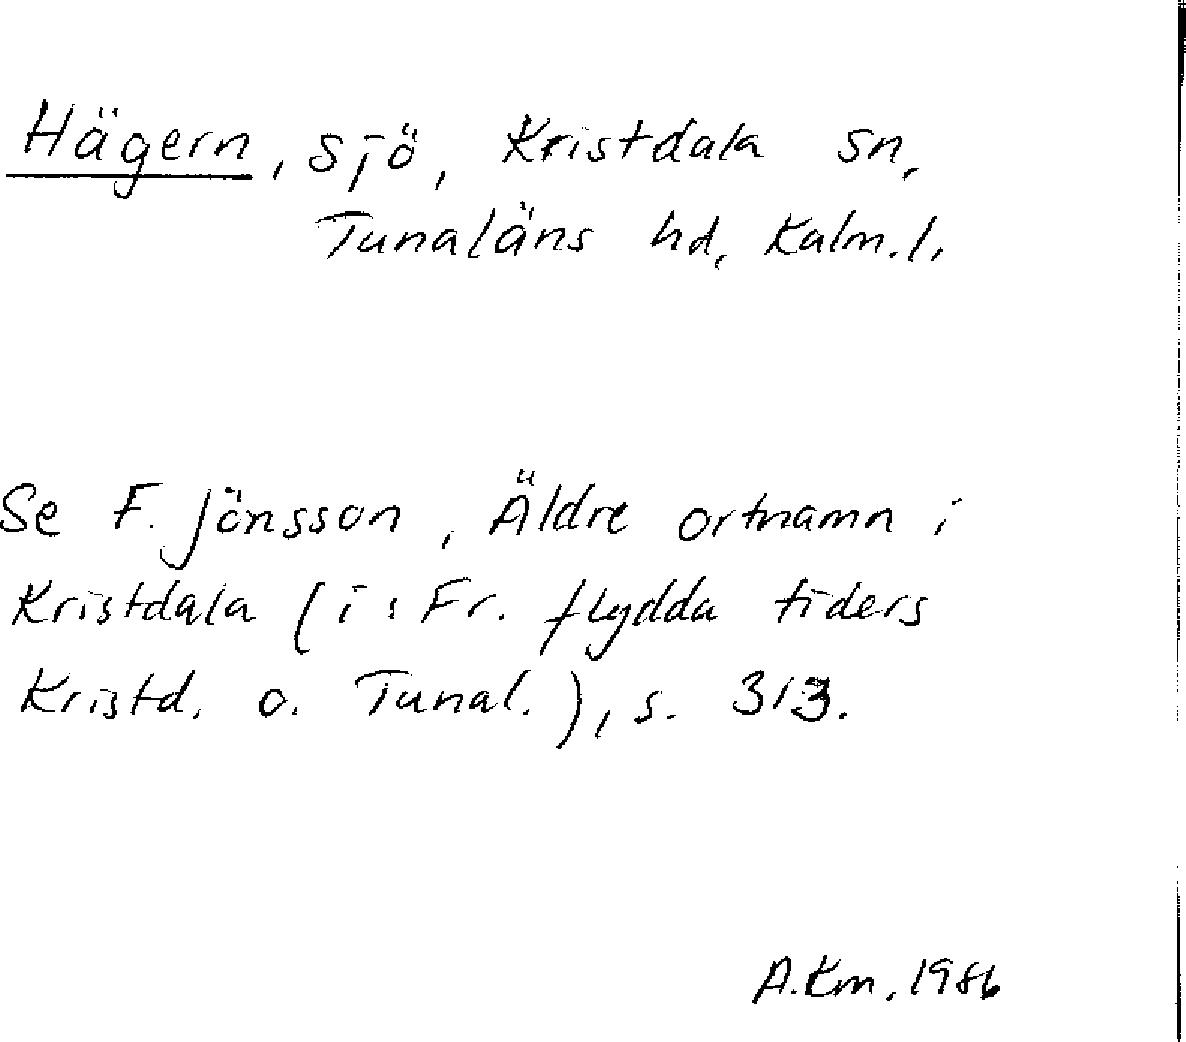 Hägern, sjö, Kristdala sn,
Tunaläns hd, Kalm.l.
Se F. Jönsson, Äldre ortnamn i
Kristdala (i: Fr. flydda tiders
Kristd. o. Tunal.), s. 313.
A.Km, 1986